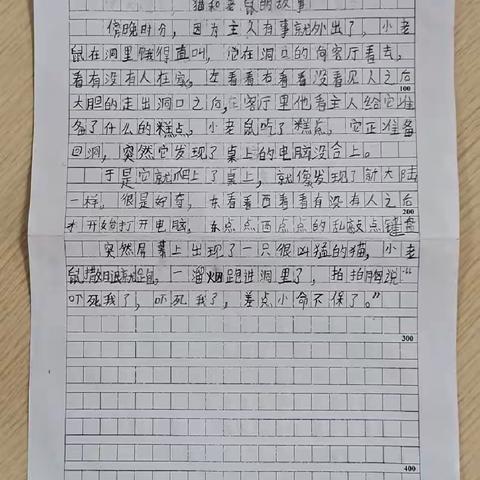 猫和老鼠的故事
傍晚时分，因为主人有事就外出了，小老
鼠在洞里饿得直叫，它在洞口的向客厅看去，
看有没有人在家，左看看右看看没看见人之后
100
大胆的走出洞口之后，客厅里他看主人给它准
备了什么的糕点，小老鼠吃了糕点，它正准备
回洞，突然它发现了桌上的电脑没合上。
于是它就爬上了桌上，就像发现了新大陆
一样，很是好奇，东看看西看看有没有人之后
200
才开始打开电脑，东点点西点点的乱敲点键盘
突然屏幕上出现了一只很凶猛的猫，小老
鼠撒腿就跑，一溜烟跑进洞里了，拍拍胸说“
吓死我了，吓死我了，差点小命不保了。”
300
400